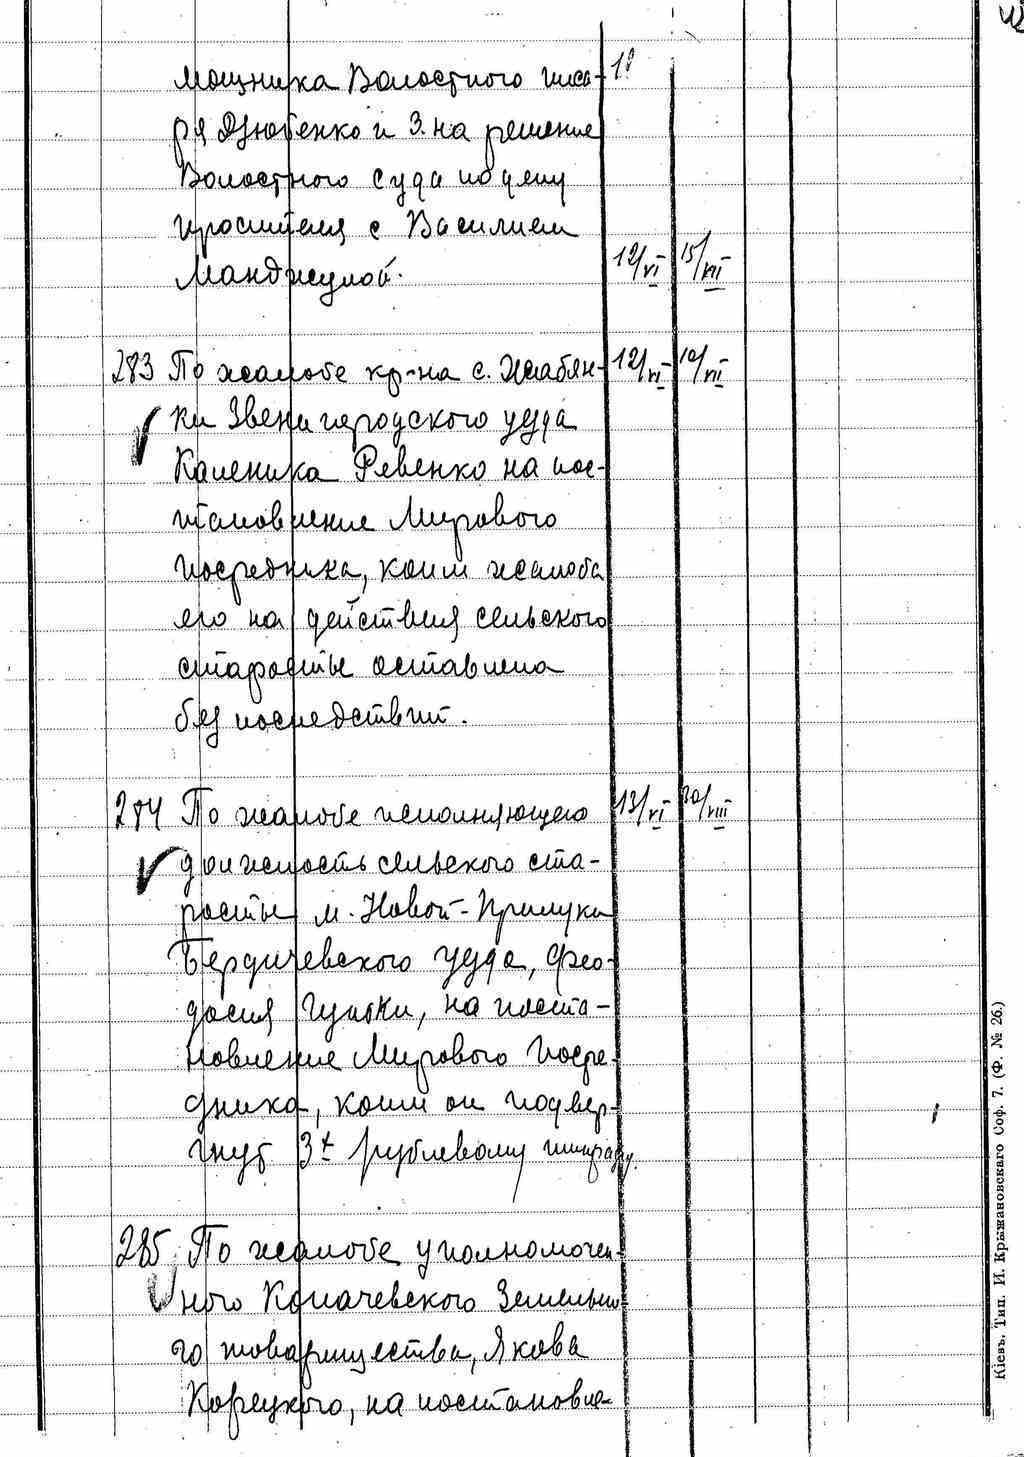 мощника Волостного писа-
ря Дзюбенко и 3. на решение
Волостного суда по делу
просителя с Василием
Манджулой. 12/VI 15/VII
283 По жалобе кр-на с. Жабян- 12/VI 10/VII
ки Звенигородского уезда
Каленика Ревенко на пос-
тановление Мирового
посредника, коим жалоба
его на действия сельского
старосты оставлена
без последствий.
284 По жалобе исполняющего 13/VI 30/VIII
должность сельского ста-
росты м. Новой-Прилуки
Бердичевского уезда, Фео-
досия Гульки, на поста-
новление Мирового Посре-
дника, коим он подвер-
гнут 3х рублевому штрафу.
285 По жалобе уполномочен-
ного Копачевского Земельно-
го товарищества, Якова
Корецкого, на постановле-
Кіевъ, Тип. И. Крыжановскаго Соф. 7. (Ф. № 26.)